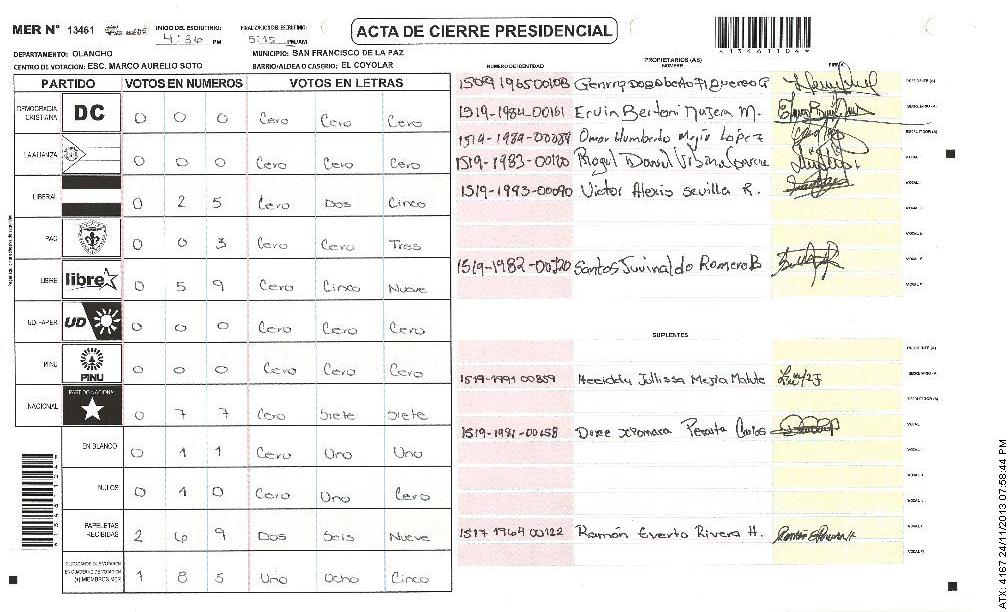 MER N° 13461 INICIO DEL ESCRUTINIO: 4:36 PM FINALIZACION DEL ESCRUTINIO: 5:15 PM/AM
ACTA DE CIERRE PRESIDENCIAL
DEPARTAMENTO: OLANCHO MUNICIPIO: SAN FRANCISCO DE LA PAZ
CENTRO DE VOTACION: ESC. MARCO AURELIO SOTO BARRIO/ALDEA O CASERIO: EL COYOLAR
PARTIDO VOTOS EN NUMEROS VOTOS EN LETRAS
DEMOCRACIA CRISTIANA DC 0 0 0 Cero Cero Cero
LA ALIANZA 0 0 0 Cero Cero Cero
LIBERAL 0 2 5 Cero Dos Cinco
PAC 0 0 3 Cero Cero Tres
LIBRE libre 0 5 9 Cero Cinco Nueve
UD-FAPER UD 0 0 0 Cero Cero Cero
PINU PINU 0 0 0 Cero Cero Cero
NACIONAL PARTIDO NACIONAL 0 7 7 Cero Siete Siete
EN BLANCO 0 1 1 Cero Uno Uno
NULOS 0 1 0 Cero Uno Cero
PAPELETAS RECIBIDAS 2 6 9 Dos Seis Nueve
CIUDADANOS QUE VOTARON EN CUADERNO DE VOTACION (+) MIEMBROS MER 1 8 5 Uno Ocho Cinco
NUMERO DE IDENTIDAD PROPIETARIOS (AS) NOMBRE FIRMA
PRESIDENTE (A)
1519-1984-00161 Ervin Bertoni Najera M. SECRETARIO (A)
1519-1989-00089 Omar Humberto Mejia Lopez ESCRUTADOR (A)
1519-1983-00120 VOCAL I
1519-1993-00090 Victor Alexis Sevilla R.
1519-1982-00720 Santos Juvinaldo Romero B
SUPLENTES
PRESIDENTE (A)
1519-1991 00859 Jullissa Mejia Matute SECRETARIO (A)
ESCRUTADOR (A)
1519-1981-00258 Peralta
1517 1964 00122 Ramón Everto Rivera H.
ATX: 4167 24/11/2013 07:58:44 PM